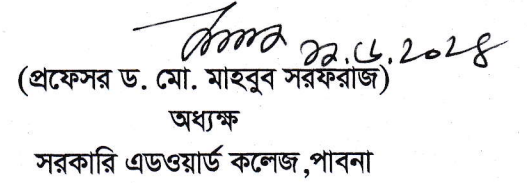 ২২.৬.২০২৪
(প্রফেসর ড. মো. মাহবুব সরফরাজ)
অধ্যক্ষ
সরকারি এডওয়ার্ড কলেজ,পাবনা